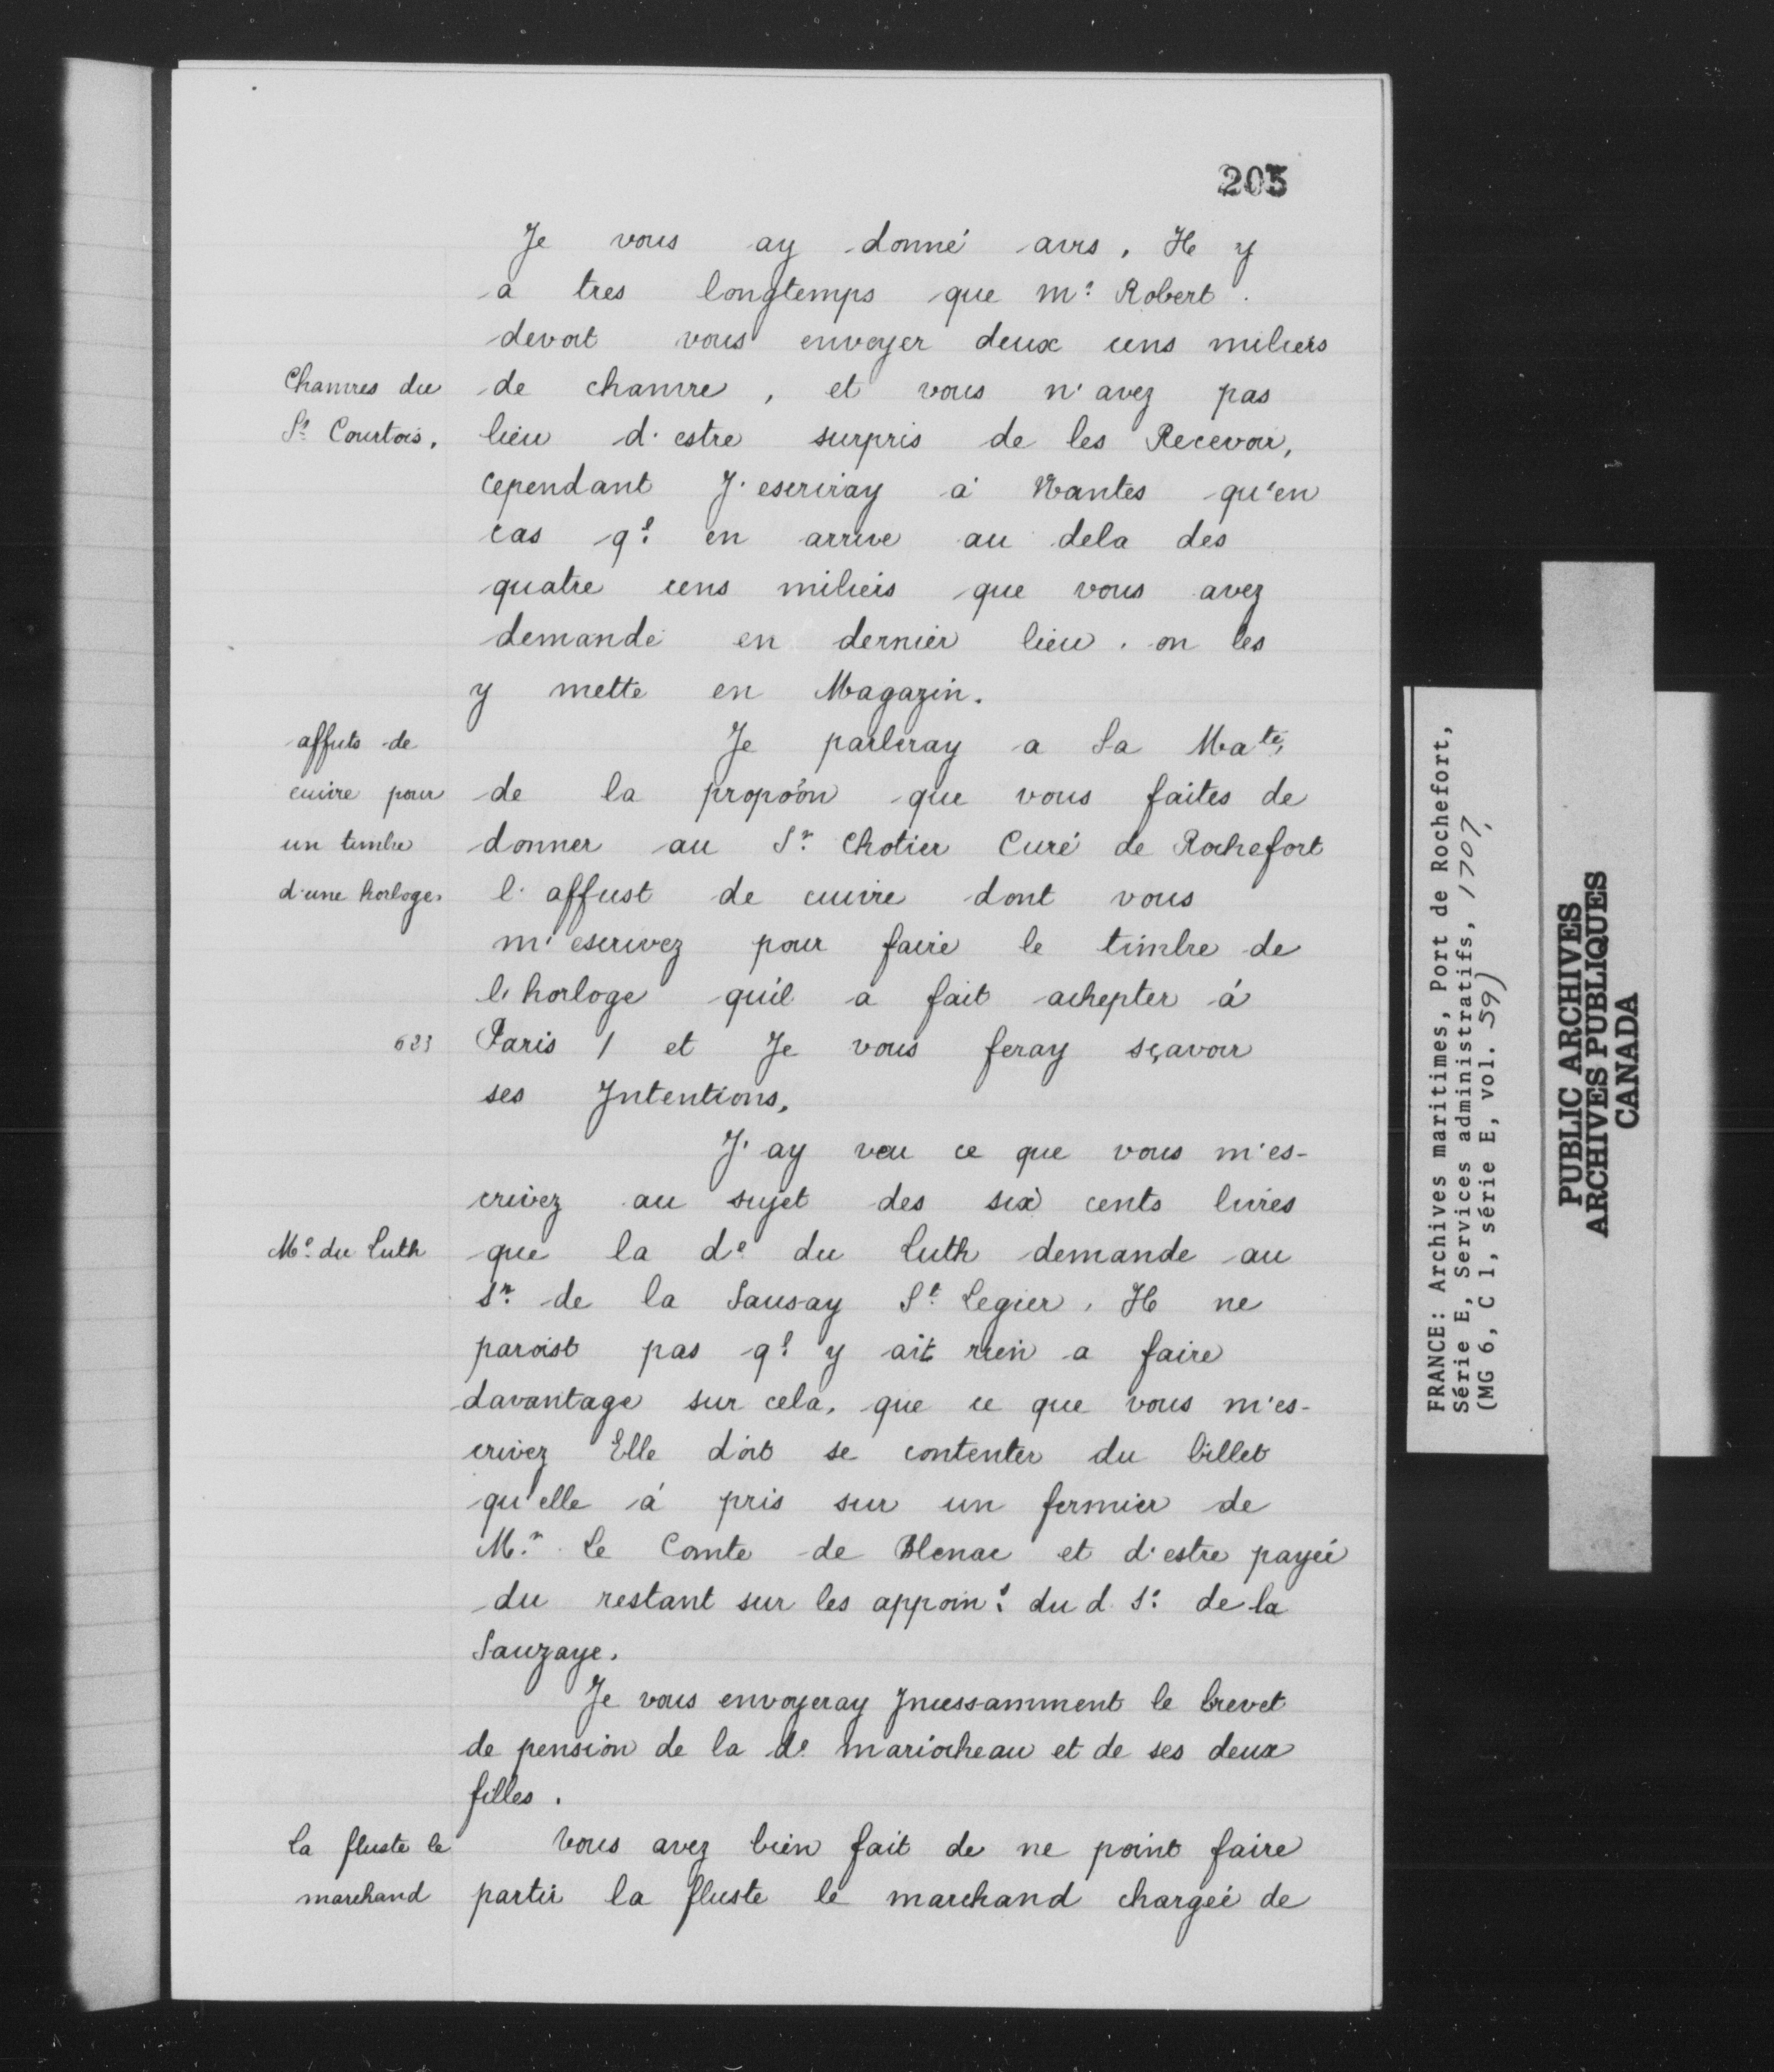 205
Je vous ay donné avis, Il y
a tres longtemps que mr. Robert.
devoit vous envoyer deux cens miliers
Chanvres du
de chanvre, et vous n'avez pas
Sr. Courtois,
lieu d'estre surpris de les Recevoir,
cependant J'escriray à Nantes qu'en
cas ql. en arrive au dela des
quatre cens miliers que vous avez
demandé en dernier lieu. on les
y mette en Magazin.
affuts de
Je parleray a Sa Maté,
cuivre pour
de la propoõn que vous faites de
un timbre
donner au Sr. Chotier Curé de Rochefort
d'une horloge.
l'affust de cuivre dont vous
m'escrivez pour faire le timbre de
l'horloge qu'il a fait achepter à
623
Paris / et Je vous feray sçavoir
ses Intentions,
J'ay veu ce que vous m'es-
crivez au sujet des six cents livres
Me. du Luth
que la de du Luth demande au
Sr. de la Sausay St. Legier. Il ne
paroist pas ql. y ait rien a faire
davantage sur cela, que ce que vous m'es-
crivez Elle doit se contenter du billet
qu'elle à pris sur un fermier de
Mr. Le Comte de Blenac et d'estre payée
du restant sur les appoins. du d. Sr. de la
Sauzaye.
Je vous envoyeray Jncessamment le brevet
de pension de la de mariocheau et de ses deux
filles.
la fluste le
Vous avez bien fait de ne point faire
marchand
partir la fluste le marchand chargée de
FRANCE: Archives maritimes, Port de Rochefort,
Série E, Services administratifs, 1707,
(MG 6, C 1, série E, vol. 59)
PUBLIC ARCHIVES
ARCHIVES PUBLIQUES
CANADA